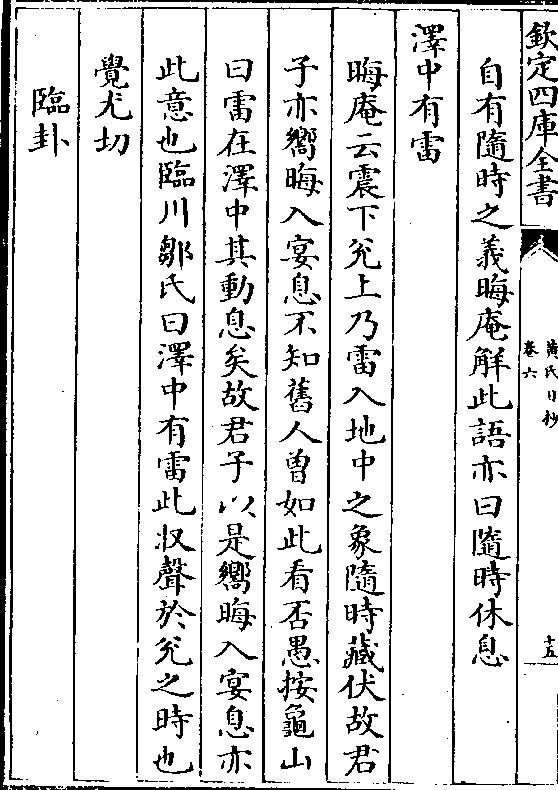 欽定四庫全書
黄氏日抄
卷六
十五
自有隨時之義晦庵解此語亦曰隨時休息
澤中有雷
晦庵云震下兌上乃雷入地中之象隨時藏伏故君
子亦嚮晦入宴息不知舊人曾如此看否愚按龜山
曰雷在澤中其動息矣故君子以是嚮晦入宴息亦
此意也臨川鄒氏曰澤中有雷此収聲於兌之時也
覺尤切
臨卦